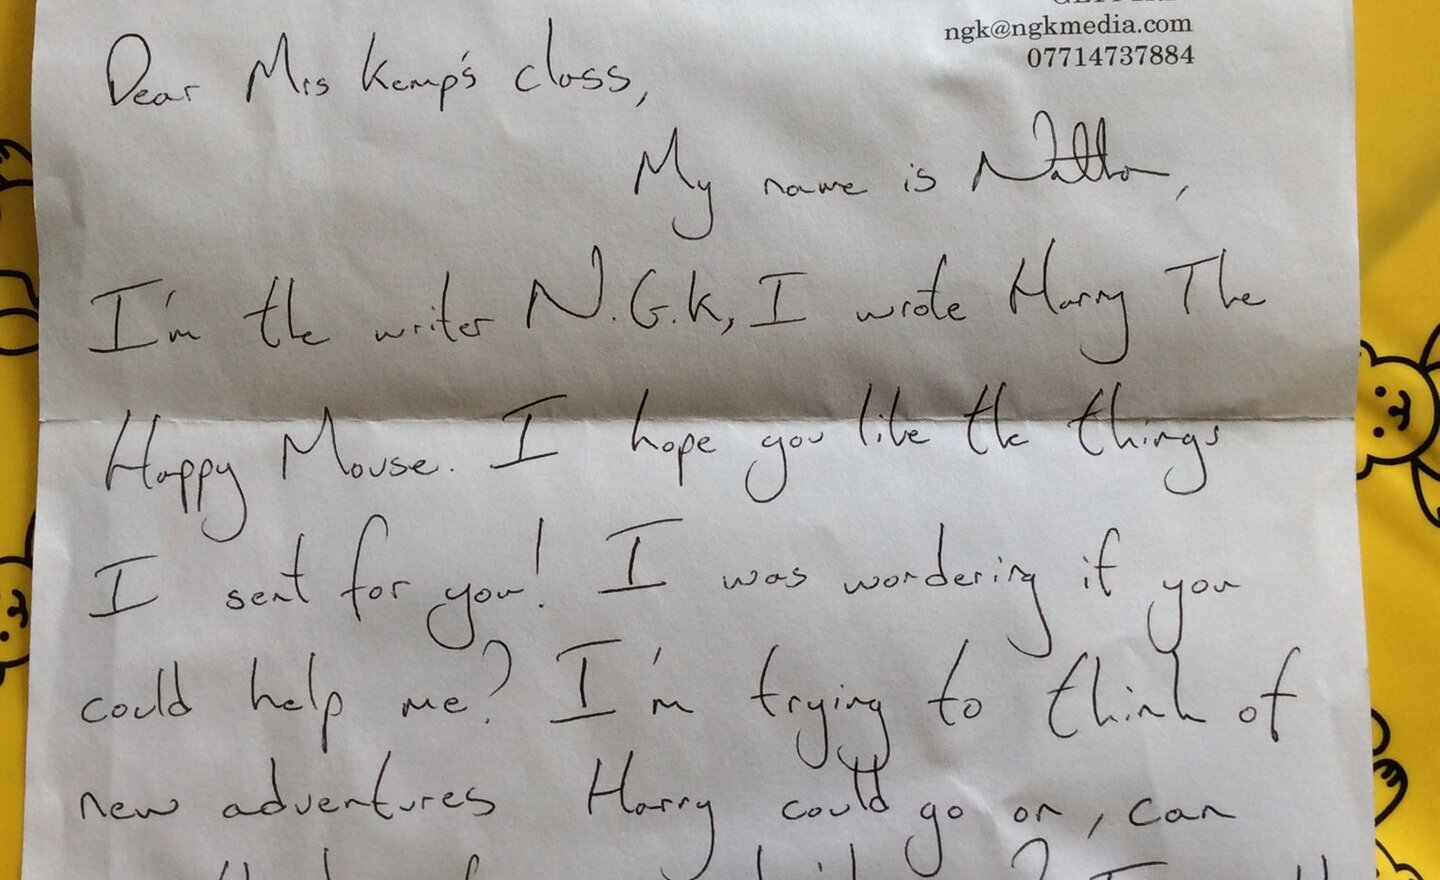 ngk@ngkmedia.com
07714737884
Dear Mrs Kemp's class,
My name is Nathan,
I'm the writer N.G.K, I wrote Harry The
Happy Mouse. I hope you like the things
I sent for you! I was wondering if you
could help me? I'm trying to think of
new adventures Harry could go on, can